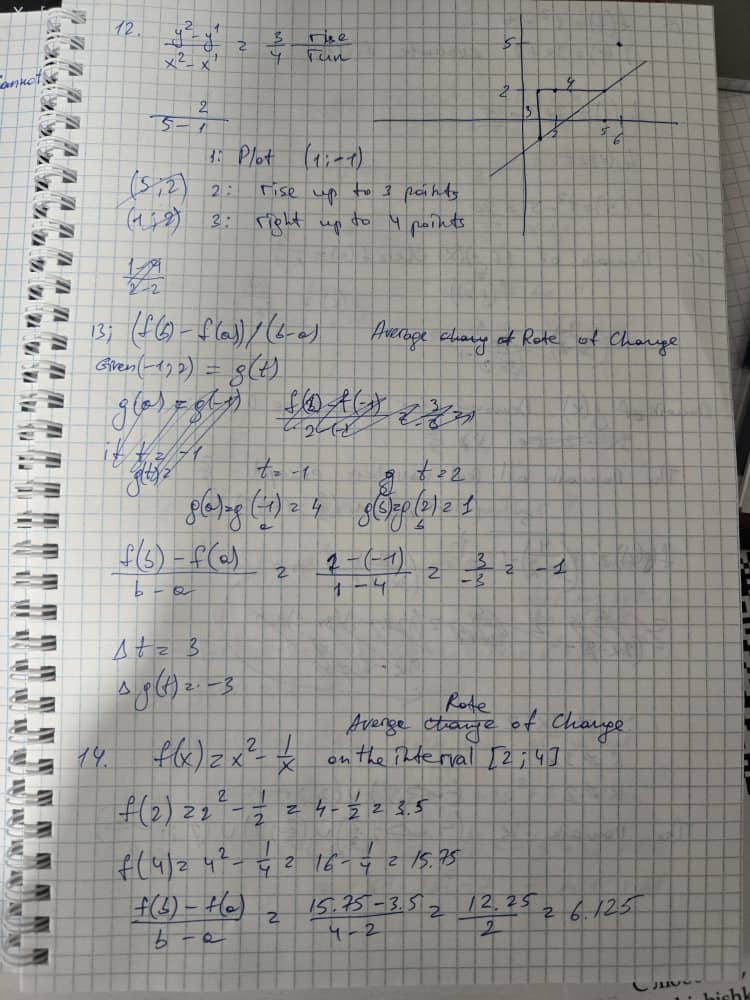 annot
12.
y² - y¹ / x² - x¹ = 3/4 rise/run
2 / 5 - 1
5
2
4
3
2
5
6
1: Plot (1; -1)
(5; 2) 2: rise up to 3 points
(1; 2) 3: right up to 4 points
2-2
13; (f(b) - f(a)) / (b-a) Average of Rate of Change
Given (-1; 2) = g(t)
g(a) = g(-1)
if t = -1
g(t) =
t = -1 g t = 2
g(a) = g(-1) = 4 g(b) = g(2) = 1
a b
f(b) - f(a) / b - a = 2 - (-1) / 1 - 4 = 3 / -3 = -1
Δt = 3
Δg(t) = -3
Rate
Average change of Change
14. f(x) = x² - 1/x on the interval [2; 4]
f(2) = 2² - 1/2 = 4 - 1/2 = 3.5
f(4) = 4² - 1/4 = 16 - 1/4 = 15.75
f(b) - f(a) / b - a = 15.75 - 3.5 / 4 - 2 = 12.25 / 2 = 6.125